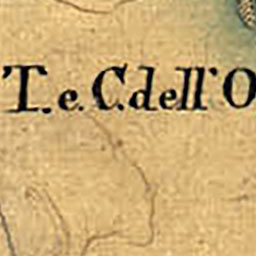 T. e C. dell' O